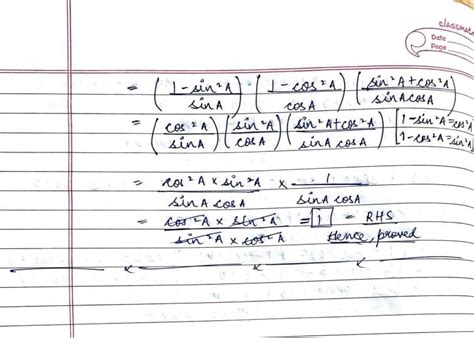 classmate
Date
Page
= (1-sin²A / sinA) (1-cos²A / cosA) (sin²A+cos²A / sinAcosA)
= (cos²A / sinA) (sin²A / cosA) (sin²A+cos²A / sinA cosA) [1-sin²A=cos²A
1-cos²A=sin²A]
= cos²A × sin²A / sinA cosA × 1 / sinA cosA
= cos²A × sin²A / sin²A × cos²A = 1 = RHS
Hence, proved